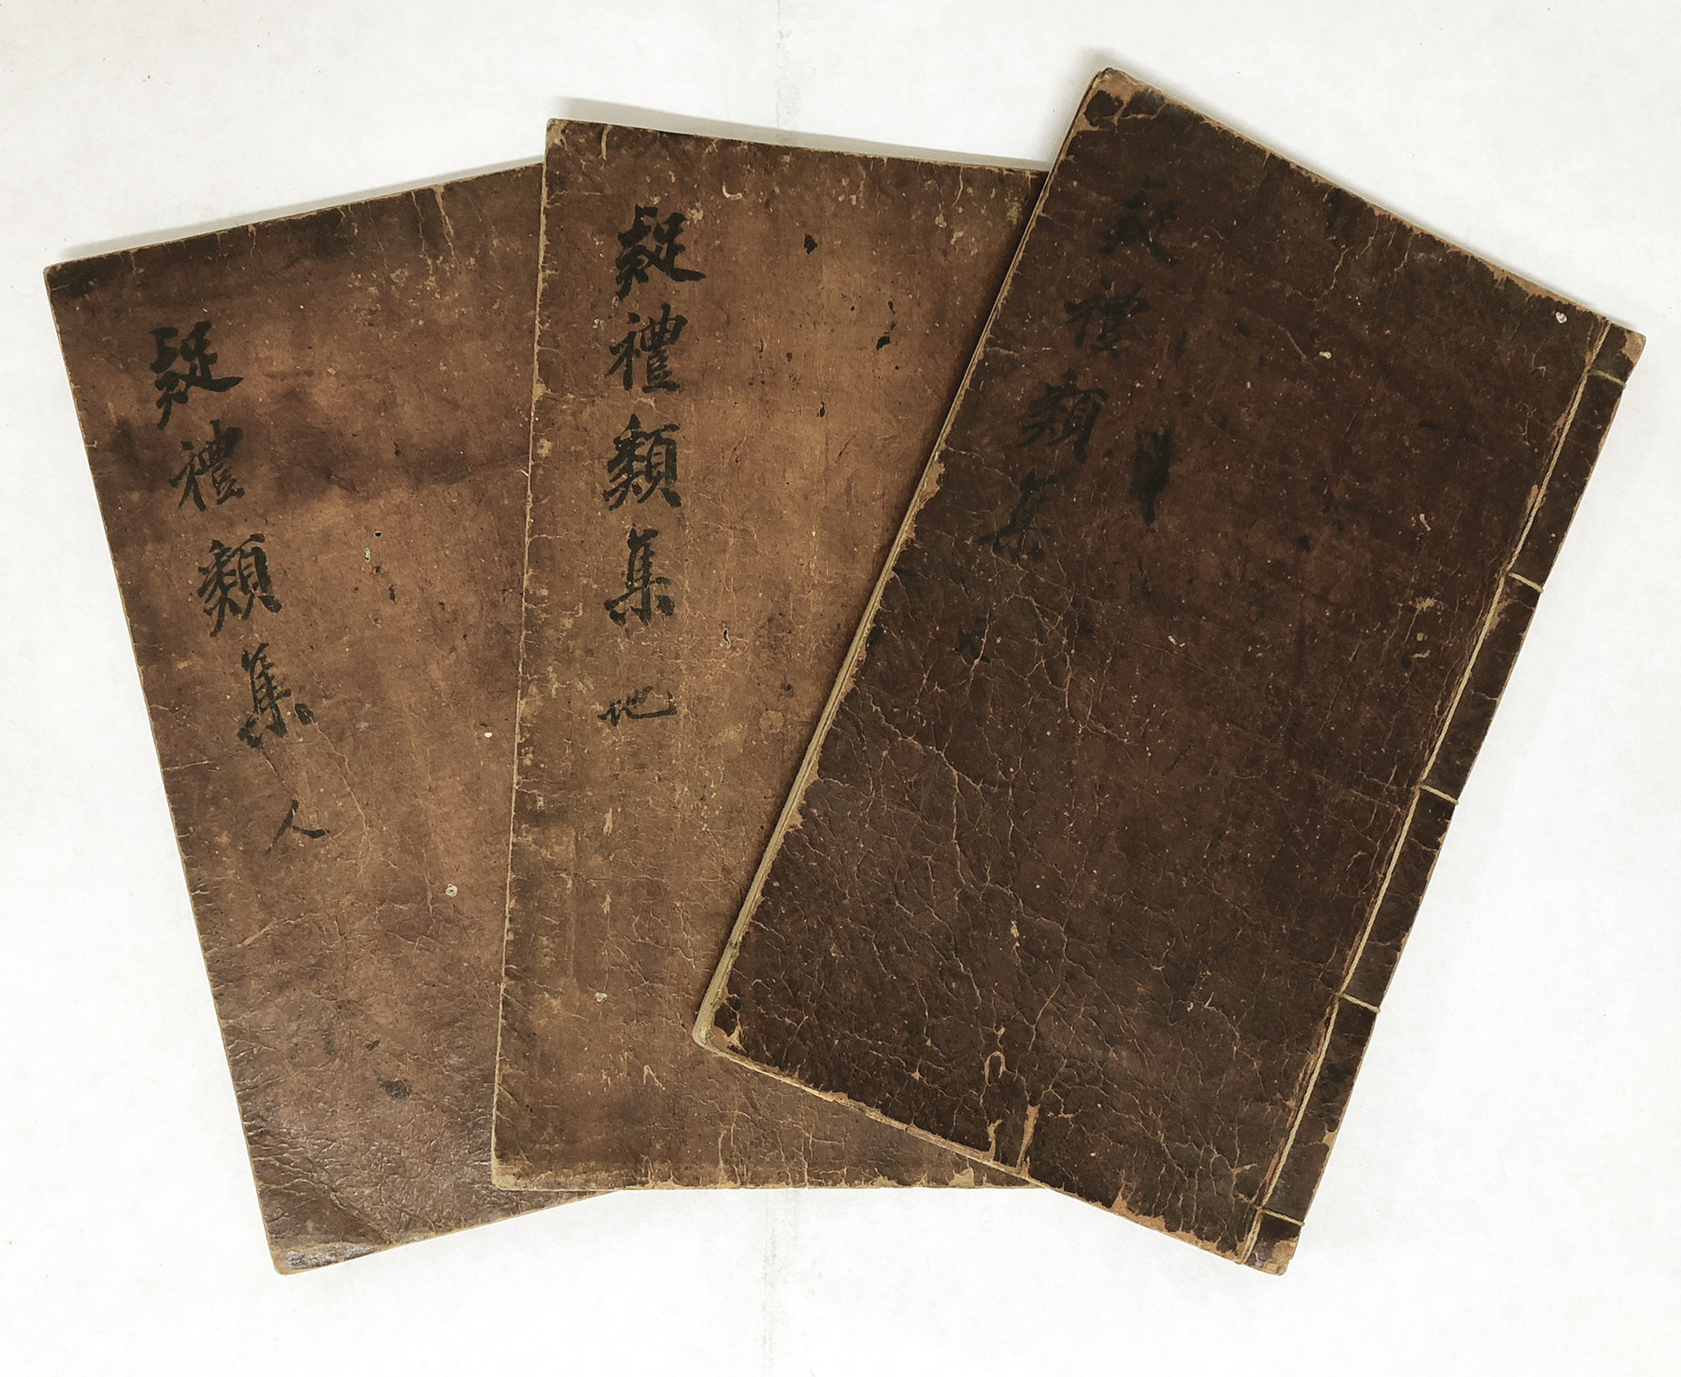 疑禮類集 天
疑禮類集 地
疑禮類集 人